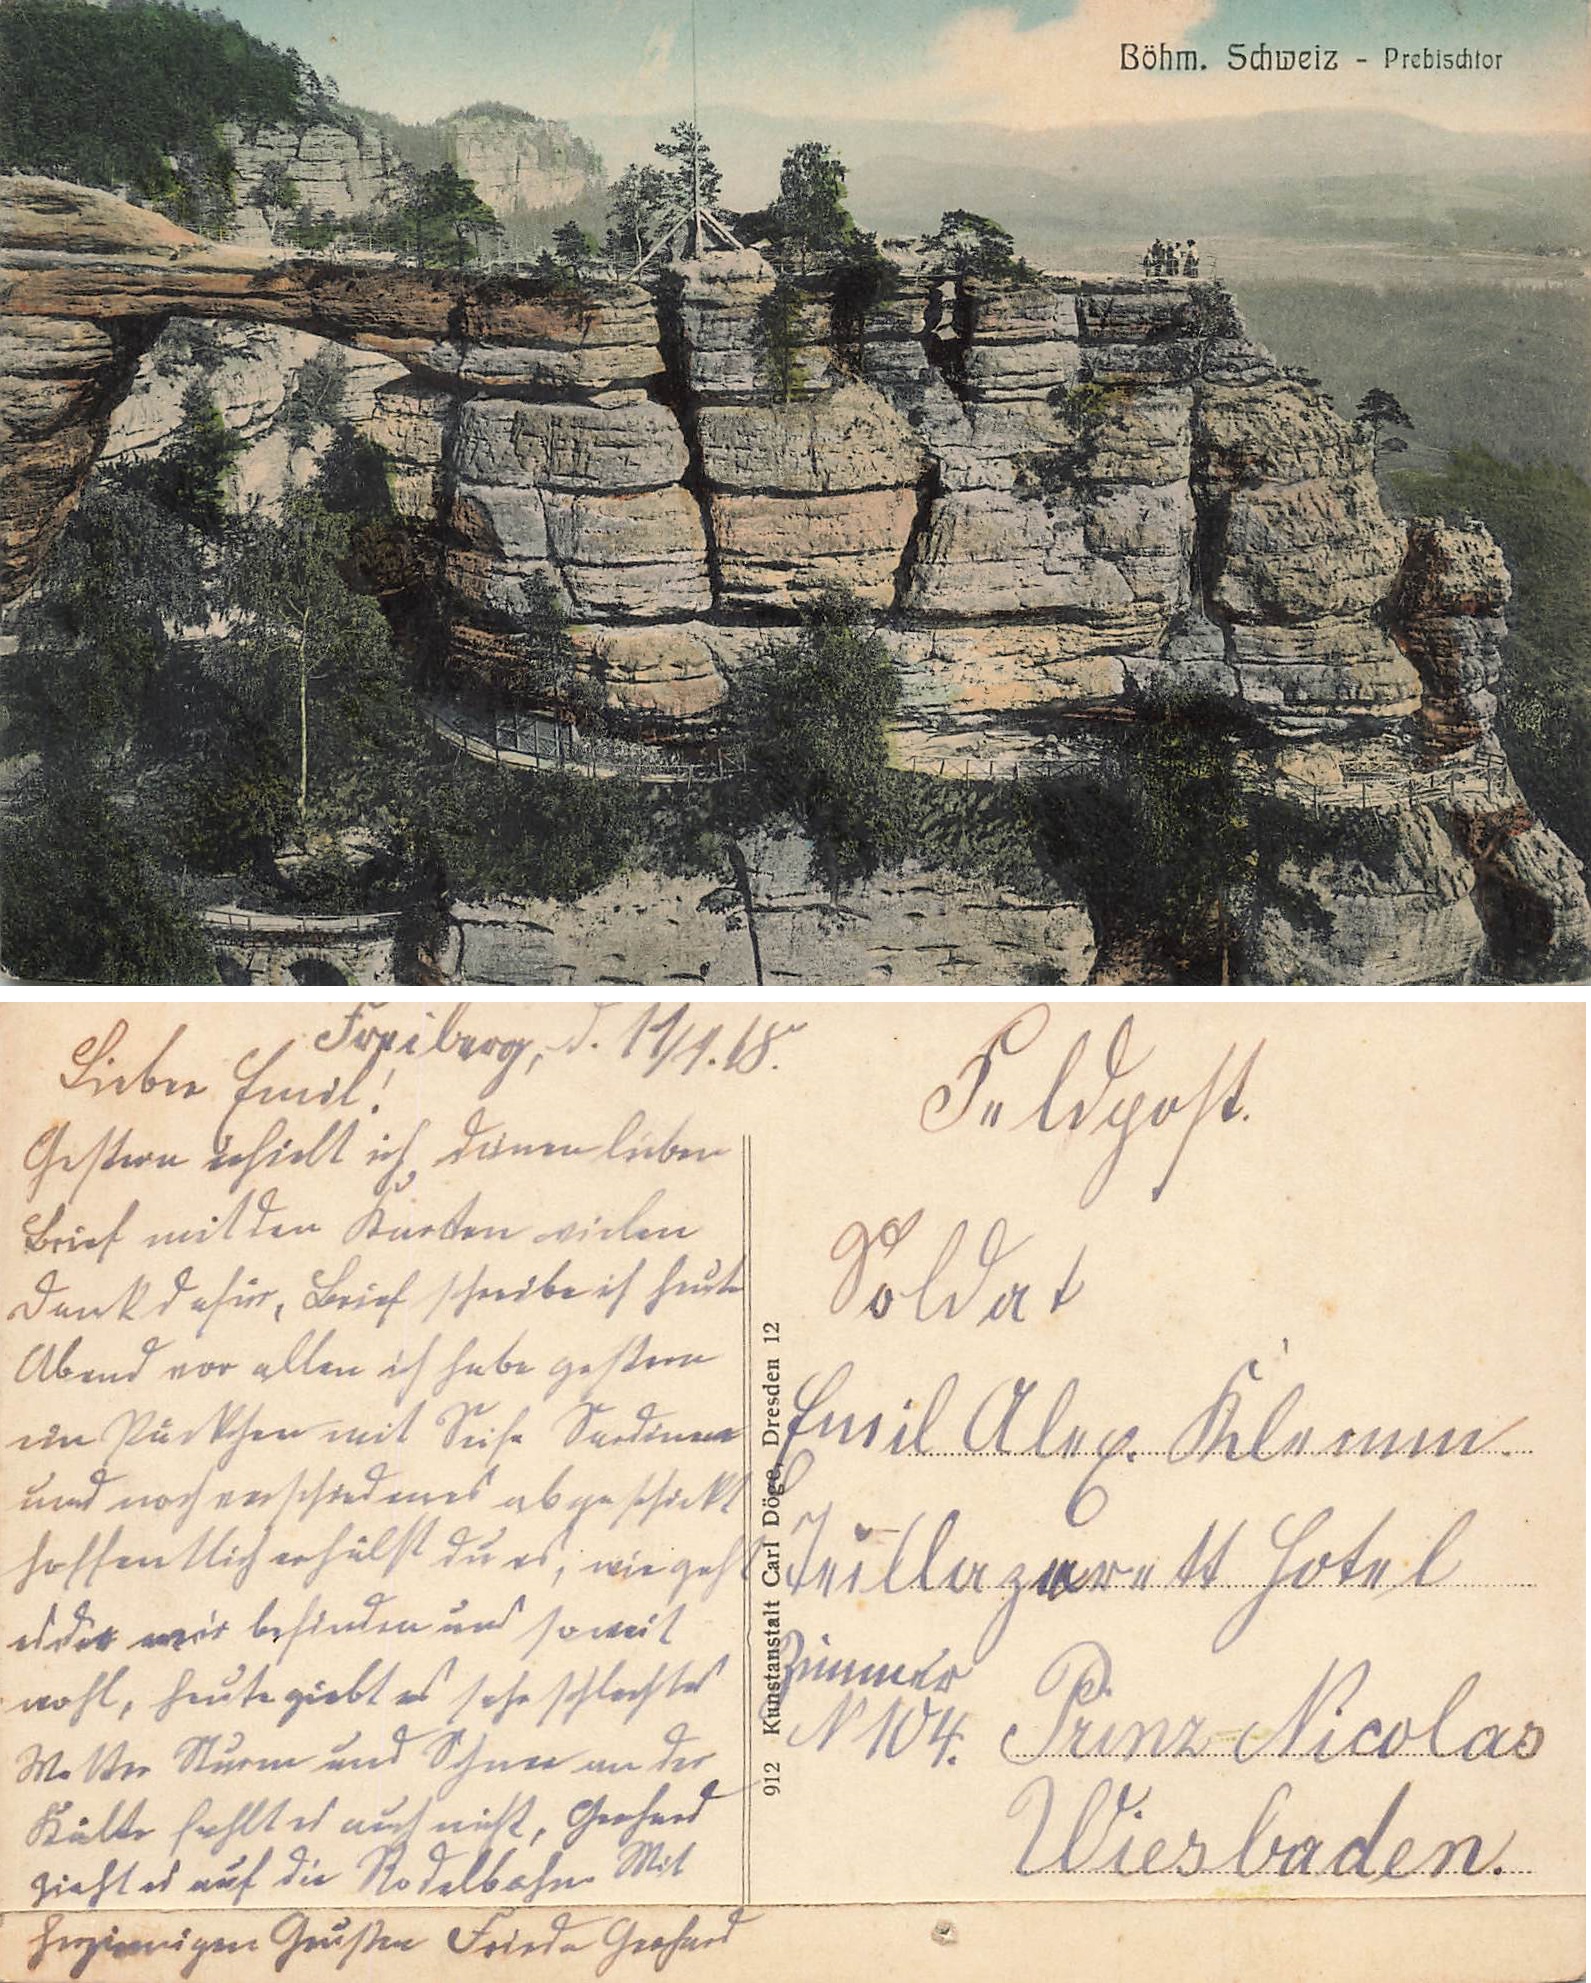 Böhm. Schweiz - Prebischtor
Freiberg, d. 11/1.18.
Lieber Emil!
Gestern erhielt ich deinen lieben
Brief mit den Karten vielen
Dank dafür, Brief schreibe ich heute
Abend vor allen ich habe gestern
ein Päckchen mit Seife Sardinen
und noch verschiedenes abgeschickt
hoffentlich erhälst du es, wie geht
es dir wir befinden uns soweit
wohl, heute giebt es sehr schlechtes
Wetter Sturm und Schnee an der
Kälte fehlt es auch nicht, Gerhard
zieht es auf die Rodelbahn. Mit
herzinnigen Grüßen Frieda Gerhard
912 Kunstanstalt Carl Döge, Dresden 12
Feldpost.
Soldat
Emil Alex. Klemm.
Teillazarett Hotel
Zimmer
N 104. Prinz Nicolas
Wiesbaden.